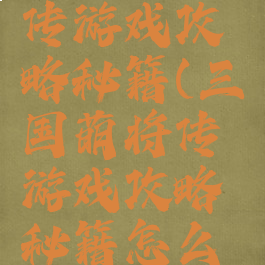 传游戏攻
略秘籍(三
国萌将传
游戏攻略
秘籍怎么